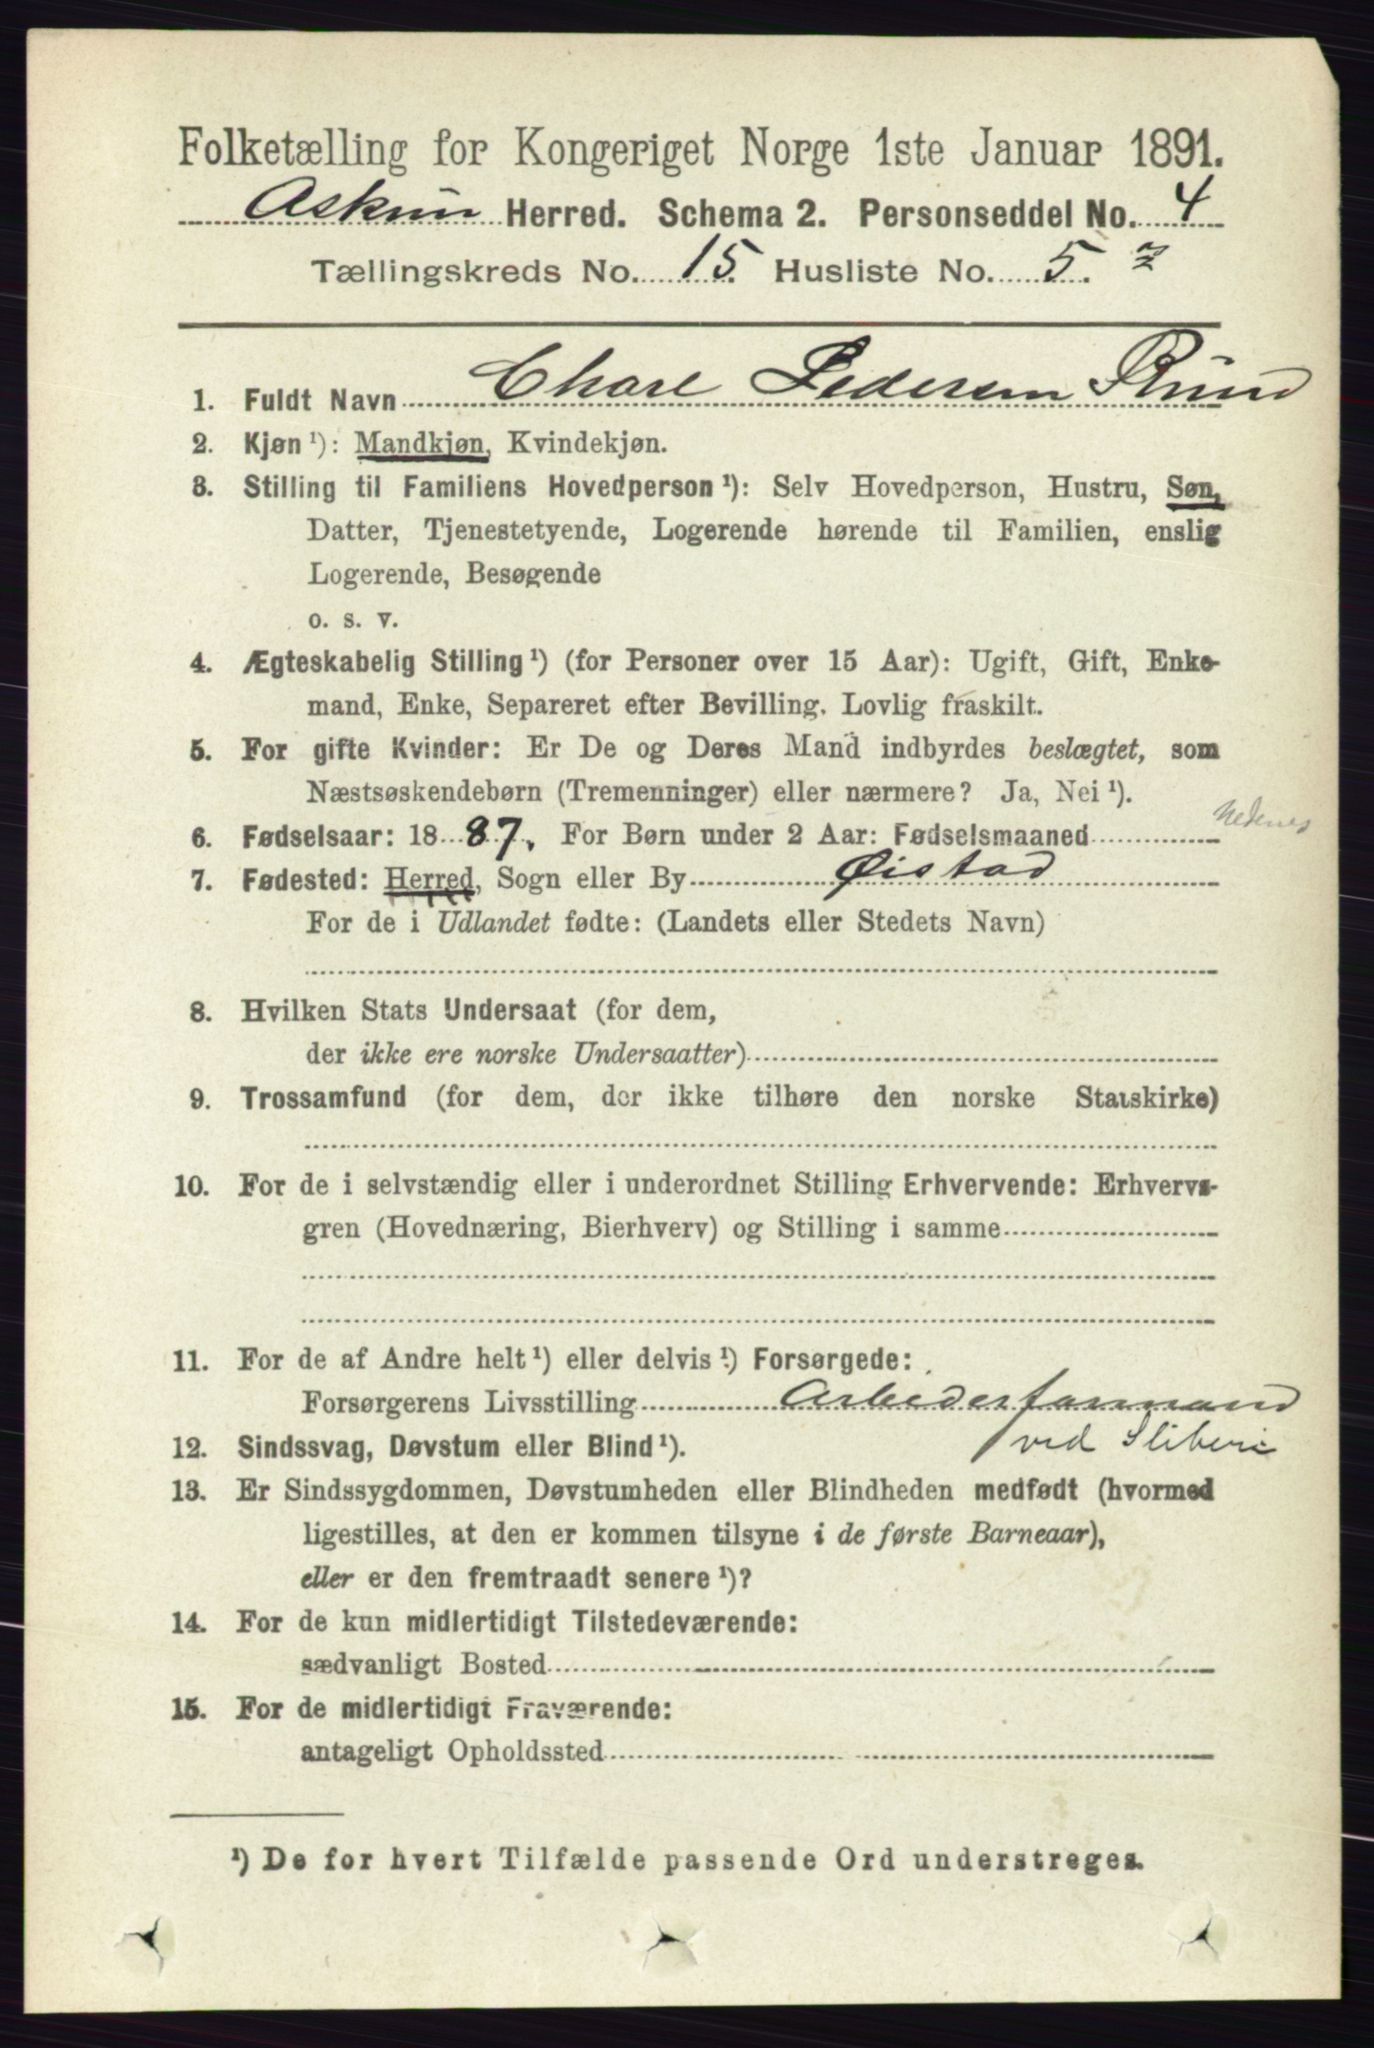 Folketælling for Kongeriget Norge 1ste Januar 1891.
Askim Herred. Schema 2. Personseddel No. 4
Tællingskreds No. 15. Husliste No. 5.
1. Fuldt Navn Charl Pedersen Ruud
2. Kjøn ¹): Mandkjøn, Kvindekjøn.
3. Stilling til Familiens Hovedperson ¹): Selv Hovedperson, Hustru, Søn,
Datter, Tjenestetyende, Logerende hørende til Familien, enslig
Logerende, Besøgende
o. s. v.
4. Ægteskabelig Stilling ¹) (for Personer over 15 Aar): Ugift, Gift, Enke-
mand, Enke, Separeret efter Bevilling. Lovlig fraskilt.
5. For gifte Kvinder: Er De og Deres Mand indbyrdes beslægtet, som
Næstsøskendebørn (Tremenninger) eller nærmere? Ja, Nei ¹).
Nedenes
6. Fødselsaar: 1887. For Børn under 2 Aar: Fødselsmaaned
7. Fødested: Herred, Sogn eller By Øistad
For de i Udlandet fødte: (Landets eller Stedets Navn)
8. Hvilken Stats Undersaat (for dem,
der ikke ere norske Undersaatter)
9. Trossamfund (for dem, der ikke tilhøre den norske Statskirke)
10. For de i selvstændig eller i underordnet Stilling Erhvervende: Erhvervs-
gren (Hovednæring, Bierhverv) og Stilling i samme
11. For de af Andre helt ¹) eller delvis ¹) Forsørgede:
Forsørgerens Livsstilling Arbeidsformand
ved Sliberi
12. Sindssvag, Døvstum eller Blind ¹).
13. Er Sindssygdommen, Døvstumheden eller Blindheden medfødt (hvormed
ligestilles, at den er kommen tilsyne i de første Barneaar),
eller er den fremtraadt senere ¹)?
14. For de kun midlertidigt Tilstedeværende:
sædvanligt Bosted
15. For de midlertidigt Fraværende:
antageligt Opholdssted
¹) De for hvert Tilfælde passende Ord understreges.